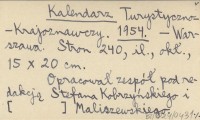 Kalendarz Turystyczno-
-Krajoznawczy. 1954. - War-
szawa. Stron 240, il., okł.,
15 x 20 cm.
Opracował zespół pod re-
dakcją Stefana Kobrzyńskiego i
[ ] Maliszewskiego